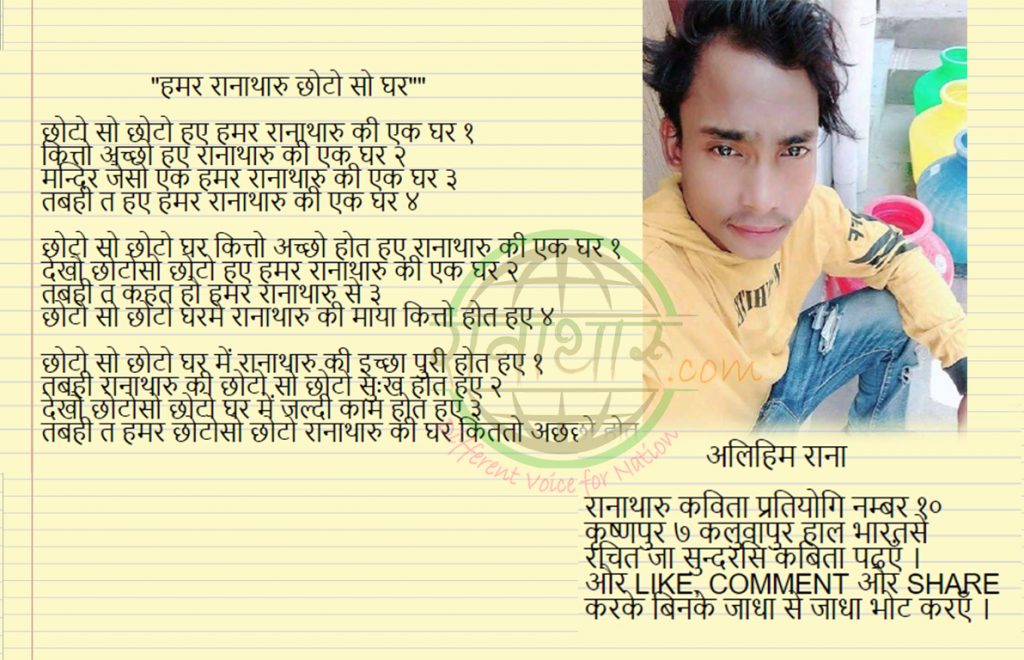 "हमर रानाथारु छोटो सो घर""
छोटो सो छोटो हए हमर रानाथारु की एक घर १
कित्तो अच्छो हए रानाथारु की एक घर २
मन्दिर जैसो एक हमर रानाथारु की एक घर ३
तबही त हए हमर रानाथारु की एक घर ४
छोटो सो छोटो घर कित्तो अच्छो होत हए रानाथारु की एक घर १
देखो छोटोसो छोटो हए हमर रानाथारु की एक घर २
तबही त कहत हौ हमर रानाथारु से ३
छोटो सो छोटो घरमे रानाथारु की माया कित्तो होत हए ४
छोटो सो छोटो घर में रानाथारु की इच्छा पुरी होत हए १
तबही रानाथारु को छोटो सो छोटो सुःख होत हए २
देखो छोटोसो छोटो घर में जल्दी काम होत हए ३
तबही त हमर छोटोसो छोटो रानाथारु की घर कित्ततो अछछो होत
रानाथारु.com
Different Voice for Nation
अलिहिम राना
रानाथारु कविता प्रतियोगि नम्बर १०
कृष्णपुर ७ कलुवापुर हाल भारतसे
रचित जा सुन्दरसि कबिता पढएँ ।
और LIKE, COMMENT और SHARE
करके बिनके जाधा से जाधा भोट करएँ ।